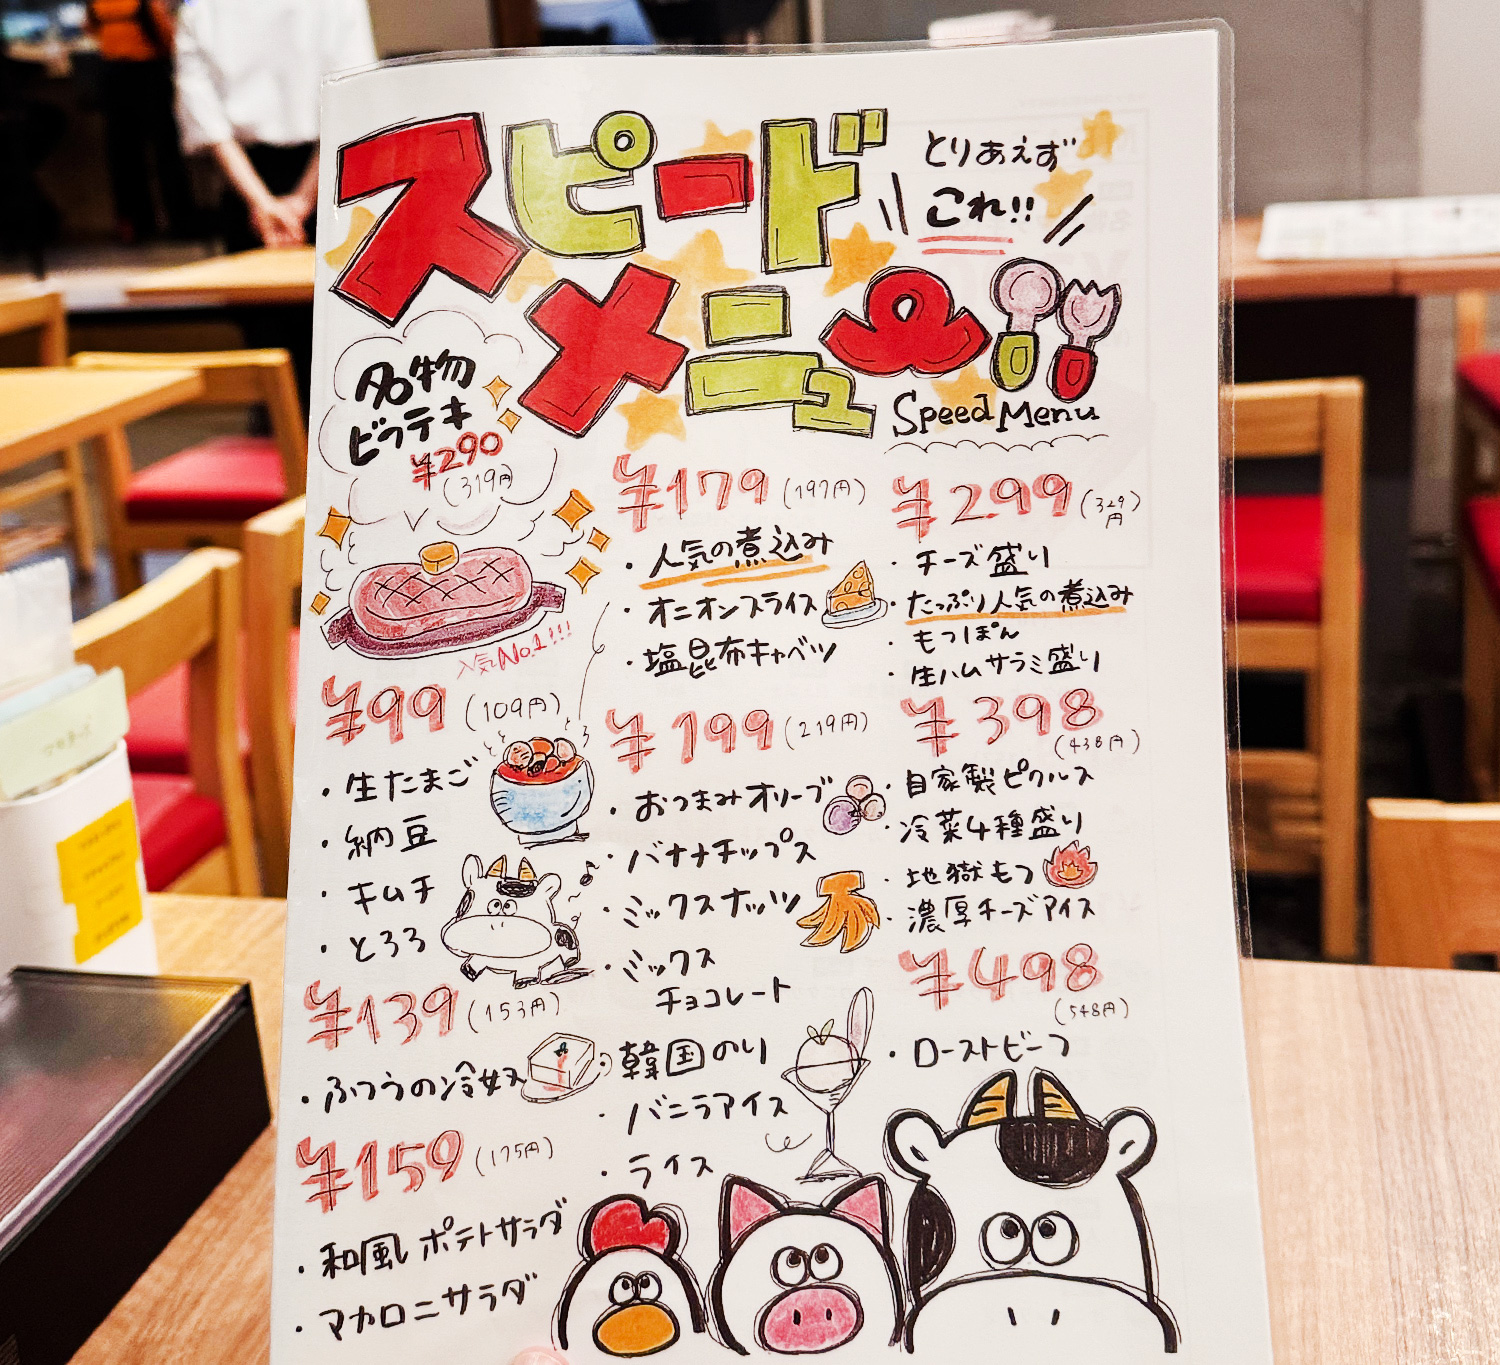 スピード
メニュー
とりあえず
これ!!
Speed Menu
名物
ビフテキ
¥290
(319円)
人気No.1!!!
¥99 (109円)
・生たまご
・納豆
・キムチ
・とろろ
¥139 (153円)
・ふつうの冷奴
¥159 (175円)
・和風ポテトサラダ
・マカロニサラダ
¥179 (197円)
・人気の煮込み
・オニオンスライス
・塩昆布キャベツ
¥199 (219円)
・おつまみオリーブ
・バナナチップス
・ミックスナッツ
・ミックス
チョコレート
・韓国のり
・バニラアイス
・ライス
¥299 (329円)
・チーズ盛り
・たっぷり人気の煮込み
・もつぽん
・生ハムサラミ盛り
¥398
(438円)
・自家製ピクルス
・冷菜4種盛り
・地獄もつ
・濃厚チーズアイス
¥498
(548円)
・ローストビーフ